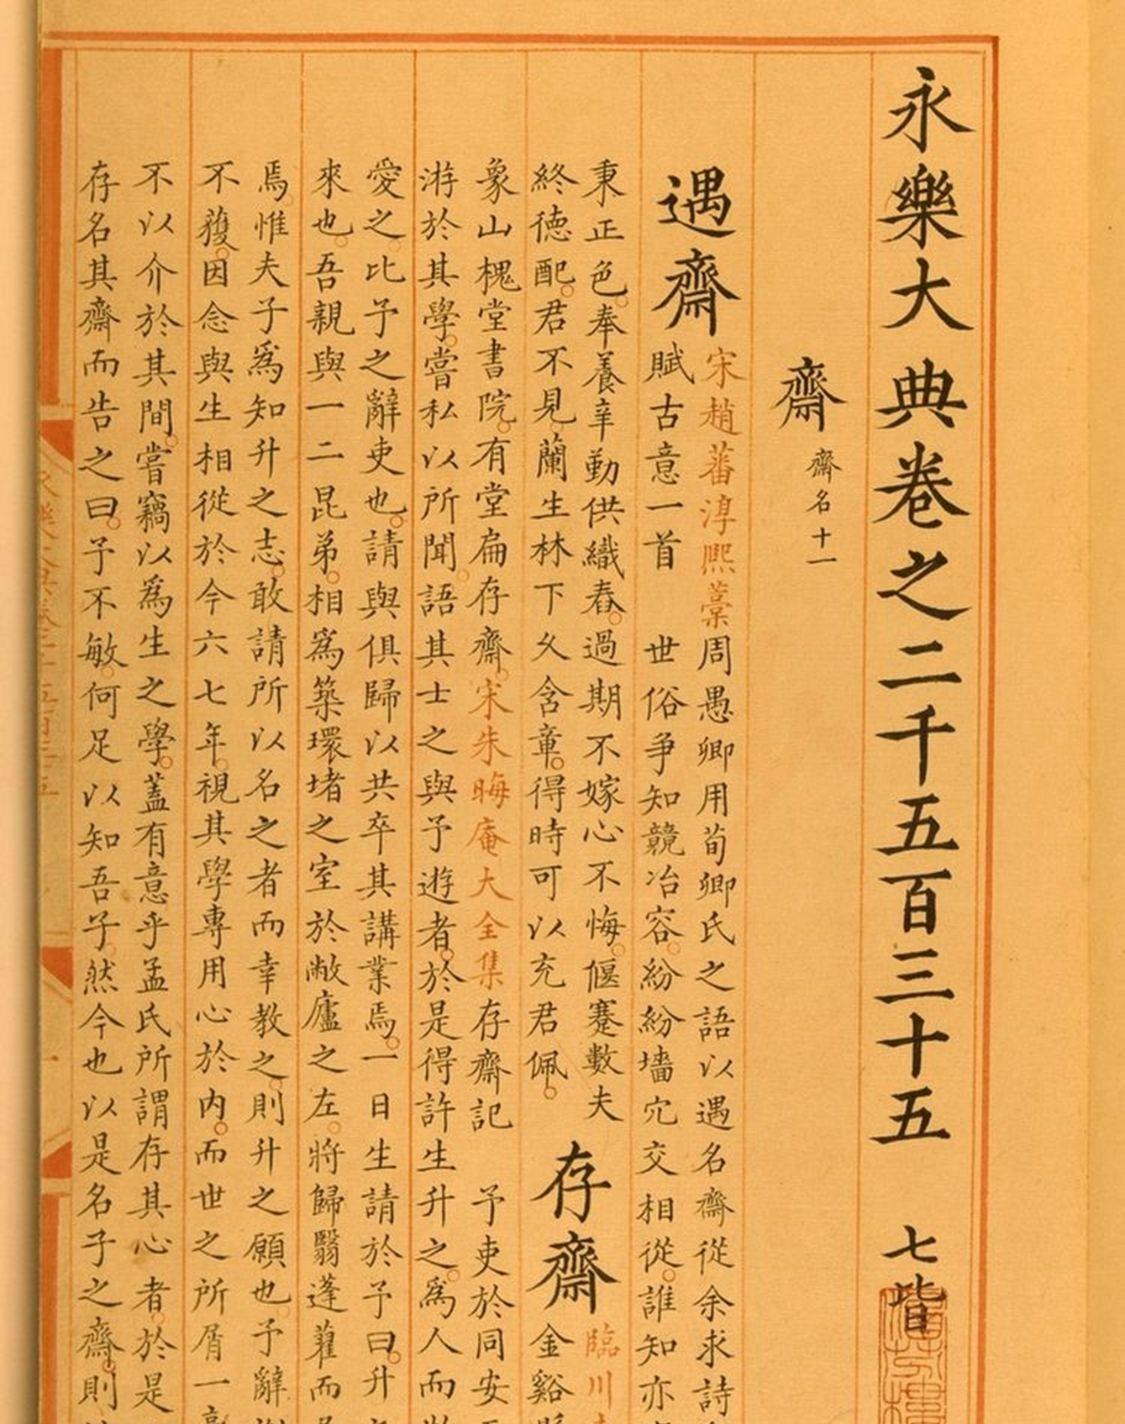 永樂大典卷之二千五百三十五 七皆
齋 齋名十一
遇齋 宋趙蕃淳熙藁周愚卿用荀卿氏之語以遇名齋從余求詩
賦古意一首 世俗爭知競冶容紛紛墻穴交相從誰知亦
秉正色奉養辛勤供織舂過期不嫁心不悔偃蹇數夫
終德配君不見蘭生林下久含章得時可以充君佩 存齋 臨川
金谿
象山槐堂書院有堂扁存齋宋朱晦庵大全集存齋記 予吏於同安
游於其學嘗私以所聞語其士之與予遊者於是得許生升之為人而
愛之比予之辭吏也請與俱歸以共卒其講業焉一日生請於予曰升
來也吾親與一二昆弟相爲築環堵之室於敝廬之左將歸翳蓬藋而
焉惟夫子爲知升之志敢請所以名之者而幸教之則升之願也予辭
不獲因念與生相從於今六七年視其學專用心於內而世之所屑一
不以介於其間嘗竊以爲生之學蓋有意乎孟氏所謂存其心者於是
存名其齋而告之曰予不敏何足以知吾子然今也以是名子之齋則